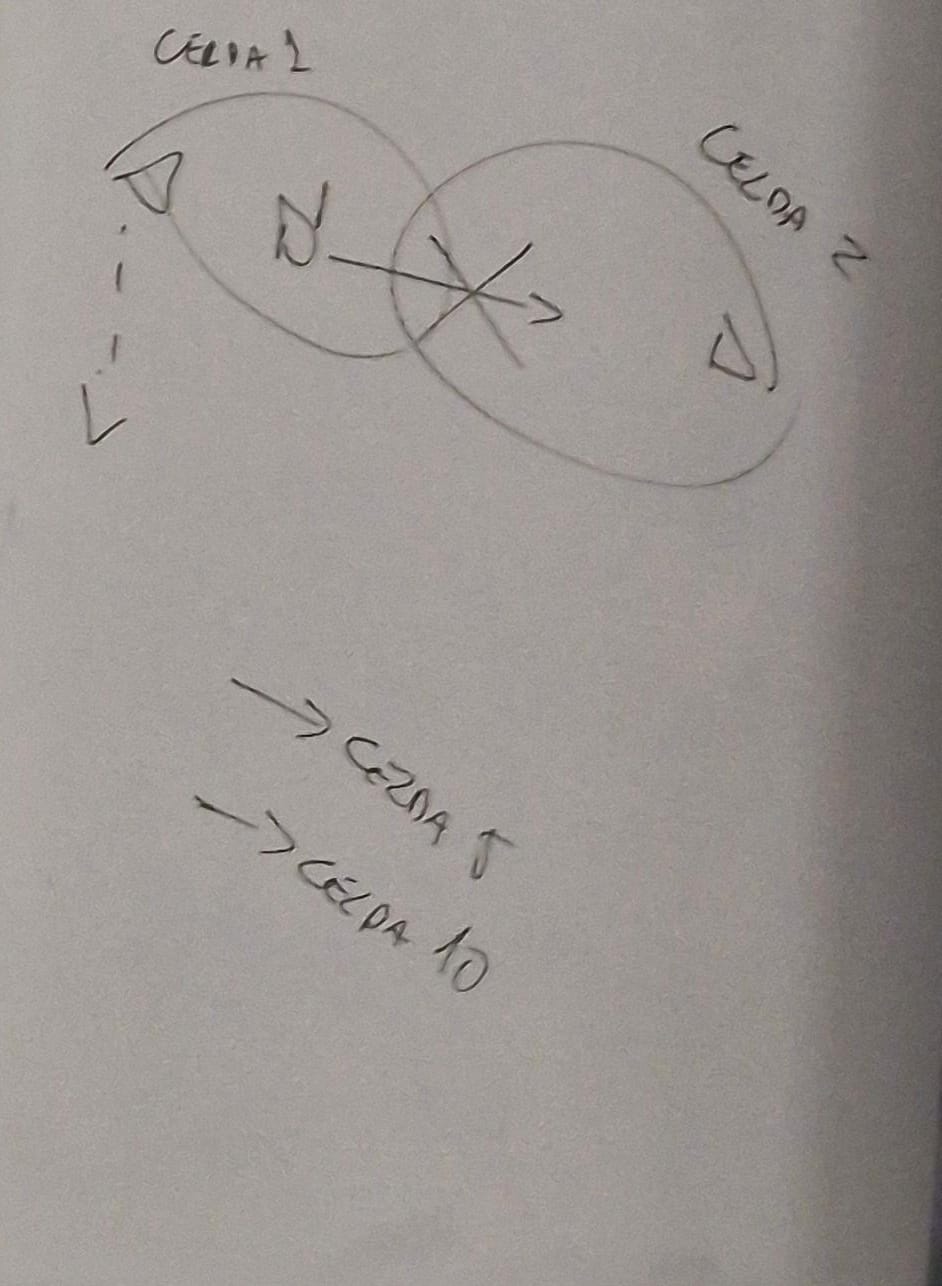 CELDA 1
CELDA 2
→ CELDA 5
→ CELDA 10